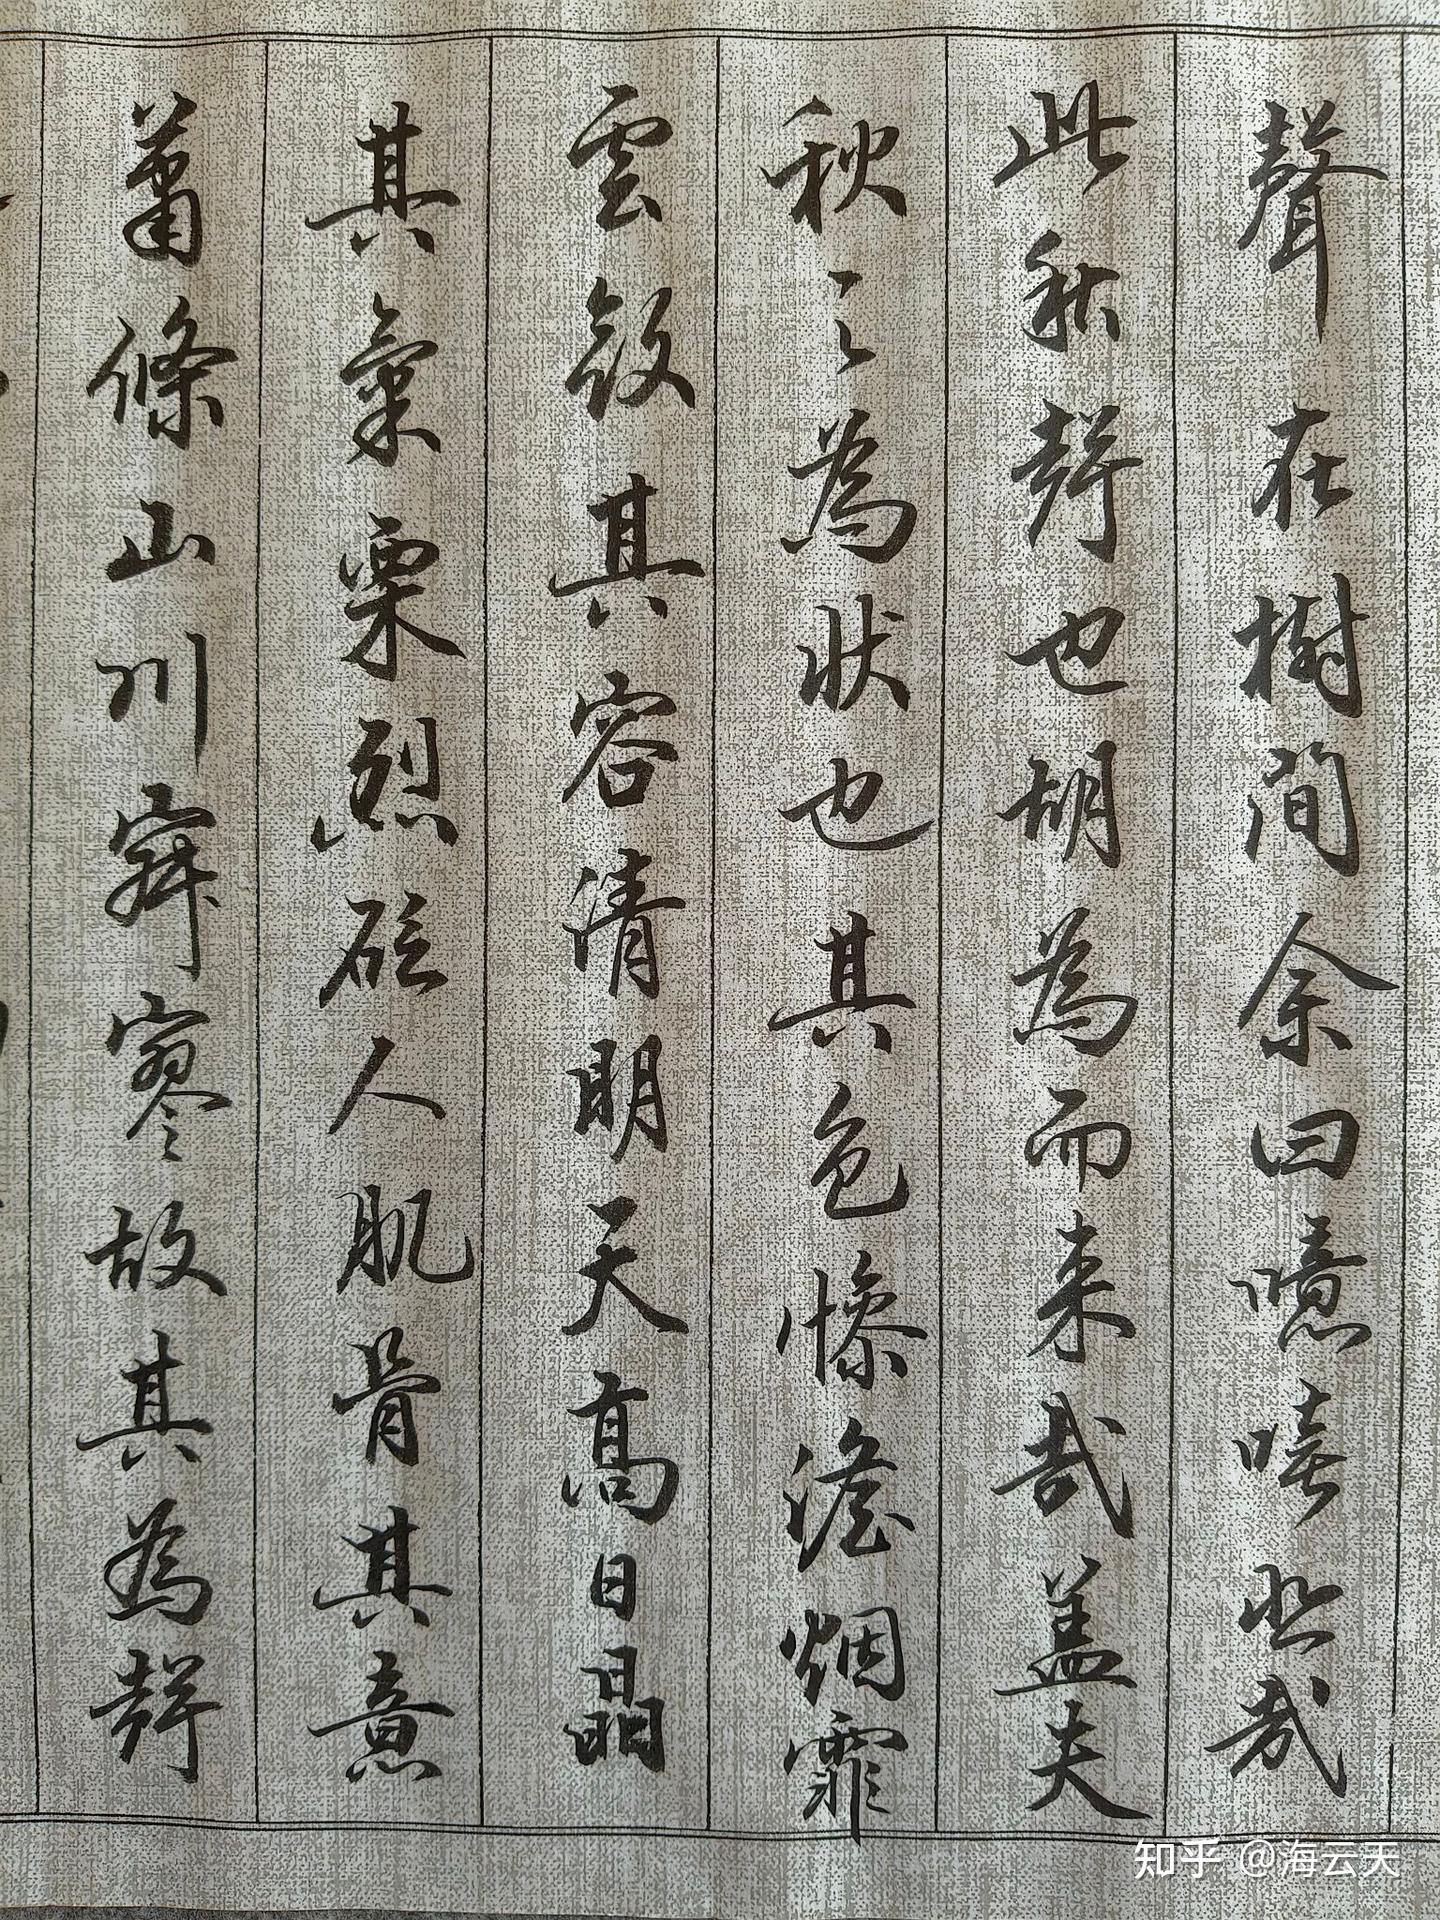 聲在樹间余曰噫嘻悲哉
此秋聲也胡為而来哉盖夫
秋之為狀也其色慘澹烟霏
雲斂其容清明天高日晶
其氣栗烈砭人肌骨其意
蕭條山川寂寥故其為聲
知乎 @海云天